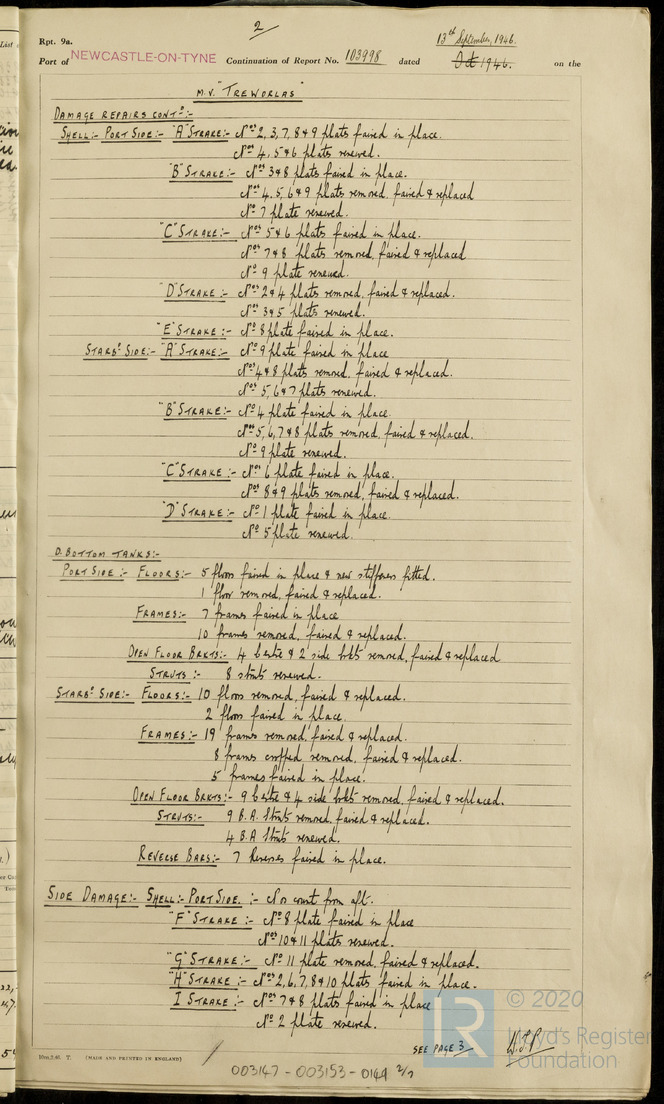 2
Rpt. 9a.
13th September, 1946.
Port of NEWCASTLE-ON-TYNE Continuation of Report No. 103998 dated Oct 1946. on the
M.V. "TREWORLAS"
DAMAGE REPAIRS CONTD:-
SHELL:- PORT SIDE:- "A" STRAKE:- Nos 2, 3, 7, 8 & 9 plates faired in place.
Nos 4, 5 & 6 plates renewed.
"B" STRAKE:- Nos 3&8 plates faired in place.
Nos 4, 5, 6 & 9 plates removed, faired & replaced
No 7 plate renewed.
"C" STRAKE:- Nos 5&6 plates faired in place.
Nos 7&8 plates removed, faired & replaced
No 9 plate renewed.
"D" STRAKE:- Nos 2&4 plates removed, faired & replaced.
Nos 3&5 plates renewed.
"E" STRAKE:- No 8 plate faired in place.
STARBD SIDE:- "A" STRAKE:- No 9 plate faired in place
Nos 4&8 plates removed, faired & replaced.
Nos 5, 6 & 7 plates renewed.
"B" STRAKE:- No 4 plate faired in place.
Nos 5, 6, 7 & 8 plates removed, faired & replaced.
No 9 plate renewed.
"C" STRAKE:- No 6 plate faired in place.
Nos 8 & 9 plates removed, faired & replaced.
"D" STRAKE:- No 1 plate faired in place.
No 5 plate renewed.
D. BOTTOM TANKS:-
PORT SIDE:- FLOORS:- 5 floors faired in place & new stiffeners fitted.
1 floor removed, faired & replaced.
FRAMES:- 7 frames faired in place
10 frames removed, faired & replaced.
OPEN FLOOR BRKTS:- 4 centre & 2 side brkts removed, faired & replaced
STRUTS:- 8 struts renewed.
STARBD SIDE:- FLOORS:- 10 floors removed, faired & replaced.
2 floors faired in place.
FRAMES:- 19 frames removed, faired & replaced.
8 frames cropped removed, faired & replaced.
5 frames faired in place.
OPEN FLOOR BRKTS:- 9 centre & 4 side brkts removed, faired & replaced.
STRUTS:- 9 B.A. Struts removed, faired & replaced.
4 B.A Struts renewed.
REVERSE BARS:- 7 Reverses faired in place.
SIDE DAMAGE:- SHELL:- PORT SIDE. :- Nos count from aft.
"F" STRAKE:- No 8 plate faired in place
Nos 10 & 11 plates renewed.
"G" STRAKE:- No 11 plate removed, faired & replaced.
"H" STRAKE:- Nos 2, 6, 7, 8 & 10 plates faired in place.
I STRAKE:- Nos 7 & 8 plates faired in place
No 2 plate renewed.
SEE PAGE 3
10m,2.46. T. (MADE AND PRINTED IN ENGLAND)
003147 - 003153 - 0149 2/2
LR
© 2020
Lloyd's Register
Foundation